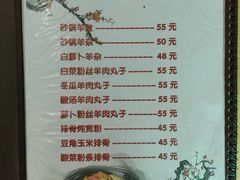 砂锅羊 55 元
砂锅羊杂 50 元
白萝卜羊杂 48 元
白菜粉丝羊肉丸子 55 元
冬瓜羊肉丸子 55 元
酸汤羊肉丸子 55 元
萝卜粉丝羊肉丸子 55 元
排骨炖宽粉 45 元
豆角玉米排骨 45 元
酸菜粉条排骨 45 元